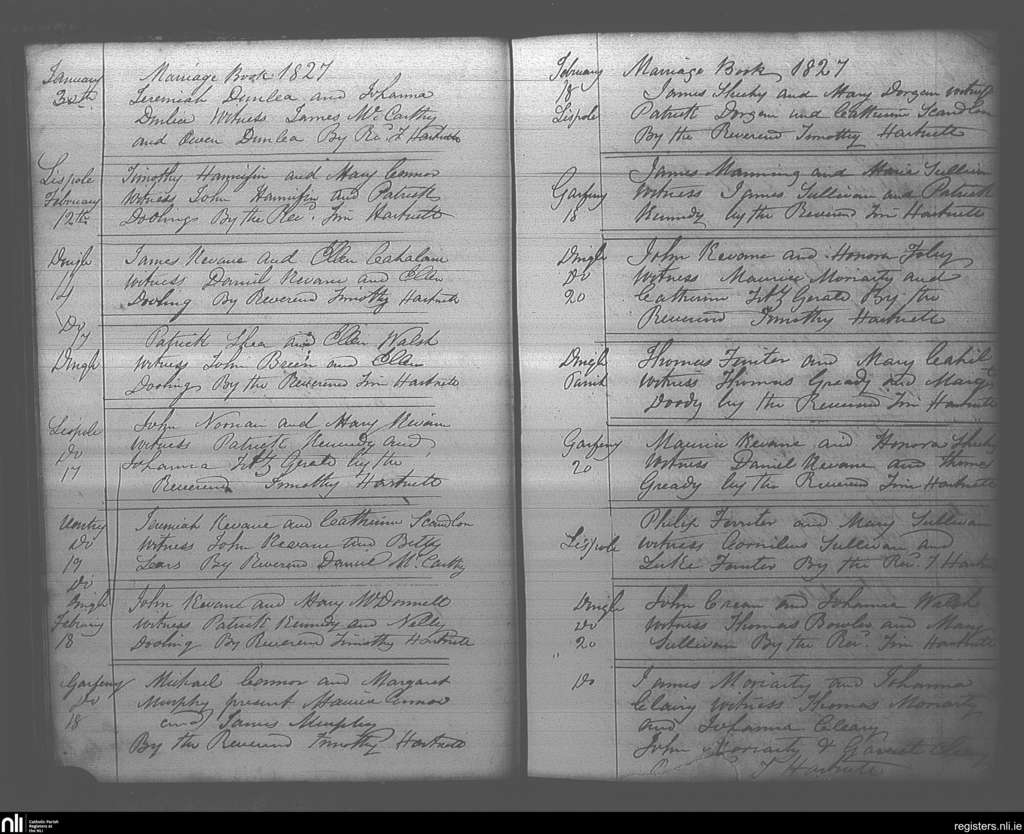 January Marriage Book 1827
30th Jeremiah Dunlea and Johanna
Dunlea Witness James McCarthy
and Owen Dunlea By Revd. T Hartnett
Lispole Timothy Hannifin and Mary Connor
February Witness John Hannifin and Patrick
12th Doolings By the Revd. Tim Hartnett
Dingle James Kevane and Ellen Cahalane
Witness Daniel Kevane and Ellen
14 Dooling By Reverend Timothy Hartnett
Do
Patrick Shea and Ellen Walsh
Dingle Witness John Breen and Ellen
Doolings By the Reverend Tim Hartnett
John Noman and Mary Kevane
Lispole Witness Patrick Kennedy and
Do Johanna FitzGerald by the
17 Reverend Timothy Hartnett
Ventry Jeremiah Kevane and Catherine Scandlon
Do Witness John Kevane and Betty
19 Sears By Reverend Daniel McCarthy
Do
Dingle John Kevane and Mary McDonnell
February Witness Patrick Kennedy and Nelly
18 Dooling By Reverend Timothy Hartnett
Garfiny Michael Connor and Margaret
Do Murphy present Maurice Connor
18 and James Murphy
By the Reverend Timothy Hartnett
February Marriage Book 1827
18 James Sheehy and Mary Dorgem Witness
Lispole Patrick Dorgem and Catherine Scandlon
By the Reverend Timothy Hartnett
James Manning and Marie Sullivan
Garfiny Witness James Sullivan and Patrick
18 Kennedy by the Reverend Tim Hartnett
Dingle John Kevane and Honora Foley
Do Witness Maurice Moriarty and
20 Catherine FitzGerald By the
Reverend Timothy Hartnett
Dingle Thomas Ferriter and Mary Cahil
Parish Witness Thomas Gready and Marg
Doody by the Reverend Tim Hartnett
Garfiny Maurice Kevane and Honora Sheehy
20 Witness Daniel Kevane and Thomas
Gready by the Reverend Tim Hartnett
Philip Ferriter and Mary Sullivan
Lispole Witness Cornilius Sullivan and
Luke Ferriter By the Revd. T Hartn
Dingle John Crean and Johanna Walsh
Do Witness Thomas Bowler and Mary
20 Sullivan By the Revd. Tim Hartnett
Do James Moriarty and Johanna
Cleary Witness Thomas Moriarty
and Johanna Cleary
John Moriarty & Garrett Cleary
T Hartnett
nli Catholic Parish Registers at the NLI
registers.nli.ie